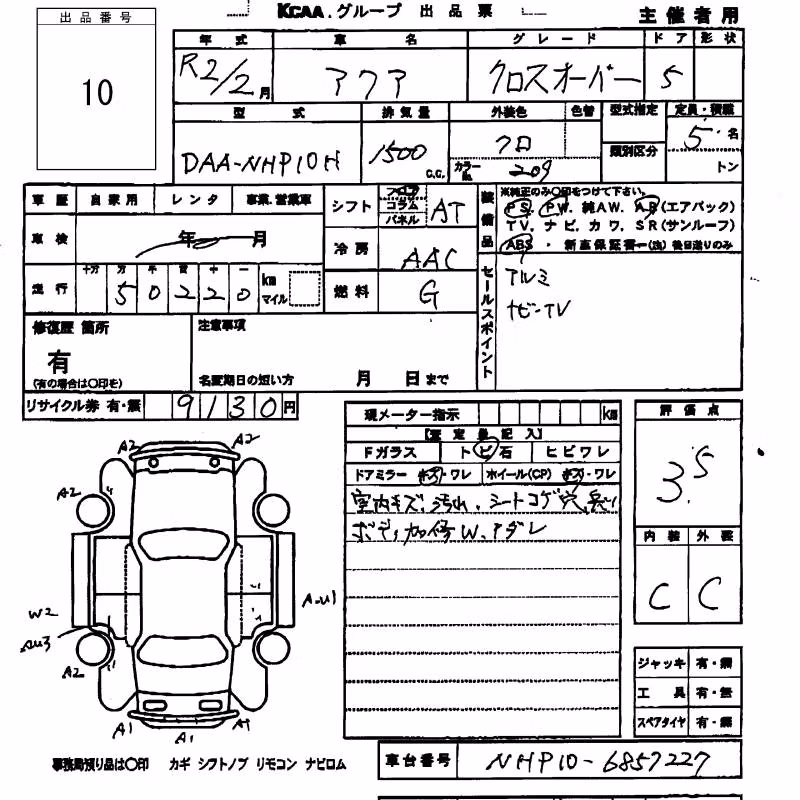 KCAA.グループ 出品票
主催者用
出品番号
10
年式 車名 グレード ドア 形状
R2/2月 アクア クロスオーバー 5
型式 排気量 外装色 色替 型式指定 定員・積載
類別区分
DAA-NHP10H 1500 c.c. クロ カラーNo. 209 5名
トン
車歴 自家用 レンタ 事業.営業車
車検 年 月
走行 十万 万 千 百 十 一
5 0 2 2 0 km マイル
シフト フロア コラム パネル AT
冷房 AAC
燃料 G
装備品 ※純正のみ〇印をつけて下さい。
PS. PW. 純AW. AB(エアバック)
TV. ナビ. カワ. SR(サンルーフ)
ABS ・ 新車保証書─(注) 後日送りのみ
セールスポイント
アルミ
ナビ-TV
修復歴 箇所
有
(有の場合は〇印を)
注意事項
名変期日の短い方 月 日まで
リサイクル券 有・無 9130円
現メーター指示 km
【査定員記入】
Fガラス トビ石 ヒビワレ
ドアミラー キズ・ワレ ホイール(CP) キズ・ワレ
室内キズ、汚れ、シートコゲ穴、
ボディ加修W、アダレ
評価点
3.5
内装 外装
C C
A2 A2
A2
W2
AU3
A2
A.U1
A1 A1 A1
ジャッキ 有・無
工具 有・無
スペアタイヤ 有・無
事務局預り品は〇印 カギ シフトノブ リモコン ナビロム
車台番号 NHP10-6857227